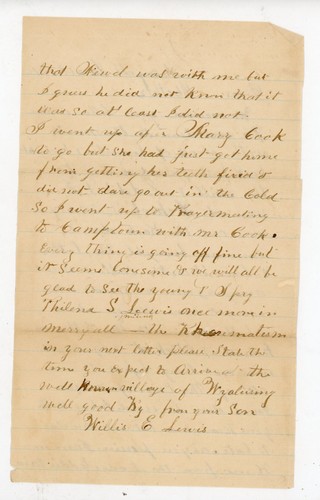 that Kind was with me but
I guess he did not know that it
was so at least I did not.
I went up after Mary Cook
to go but she had just got home
from getting her teeth fixed &
die not dare go out in the Cold
So I went up to Prayermeeting
to Camptown with mr Cook.
Every thing is going off fine but
it Seems lonesome & we will all be
glad to See the young &
Philena S. Lewis once more in
merryall — the Rheumatism
in your next letter please State the
time you expect to Arrive at the
well Known village of Wyalusing
well good by from your Son
Willis E Lewis